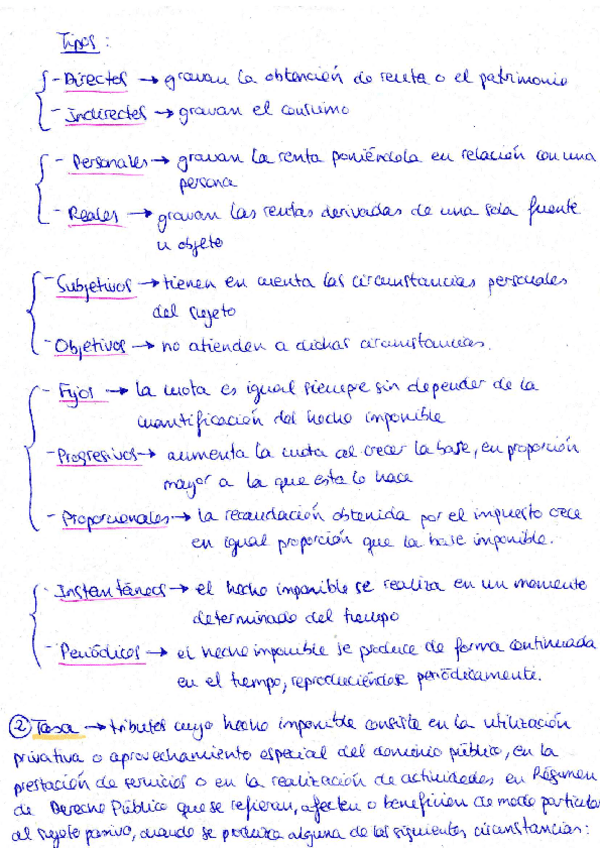 Tipos:
- Directos → gravan la obtención de renta o el patrimonio
- Indirectos → gravan el consumo
- Personales → gravan la renta poniéndola en relación con una
persona
- Reales → gravan las rentas derivadas de una sola fuente
u objeto
- Subjetivos → tienen en cuenta las circunstancias personales
del sujeto
- Objetivos → no atienden a dichas circunstancias.
- Fijos → la cuota es igual siempre sin depender de la
cuantificación del hecho imponible
- Progresivos → aumenta la cuota al crecer la base, en proporción
mayor a la que esta lo hace
- Proporcionales → la recaudación obtenida por el impuesto crece
en igual proporción que la base imponible.
- Instantáneos → el hecho imponible se realiza en un momento
determinado del tiempo
- Periódicos → el hecho imponible se produce de forma continuada
en el tiempo, reproduciéndose periódicamente.
② Tasa → tributos cuyo hecho imponible consiste en la utilización
privativa o aprovechamiento especial del dominio público, en la
prestación de servicios o en la realización de actividades en Régimen
de Derecho Público que se refieran, afecten o beneficien de modo particular
al sujeto pasivo, cuando se produzca alguna de las siguientes circunstancias: